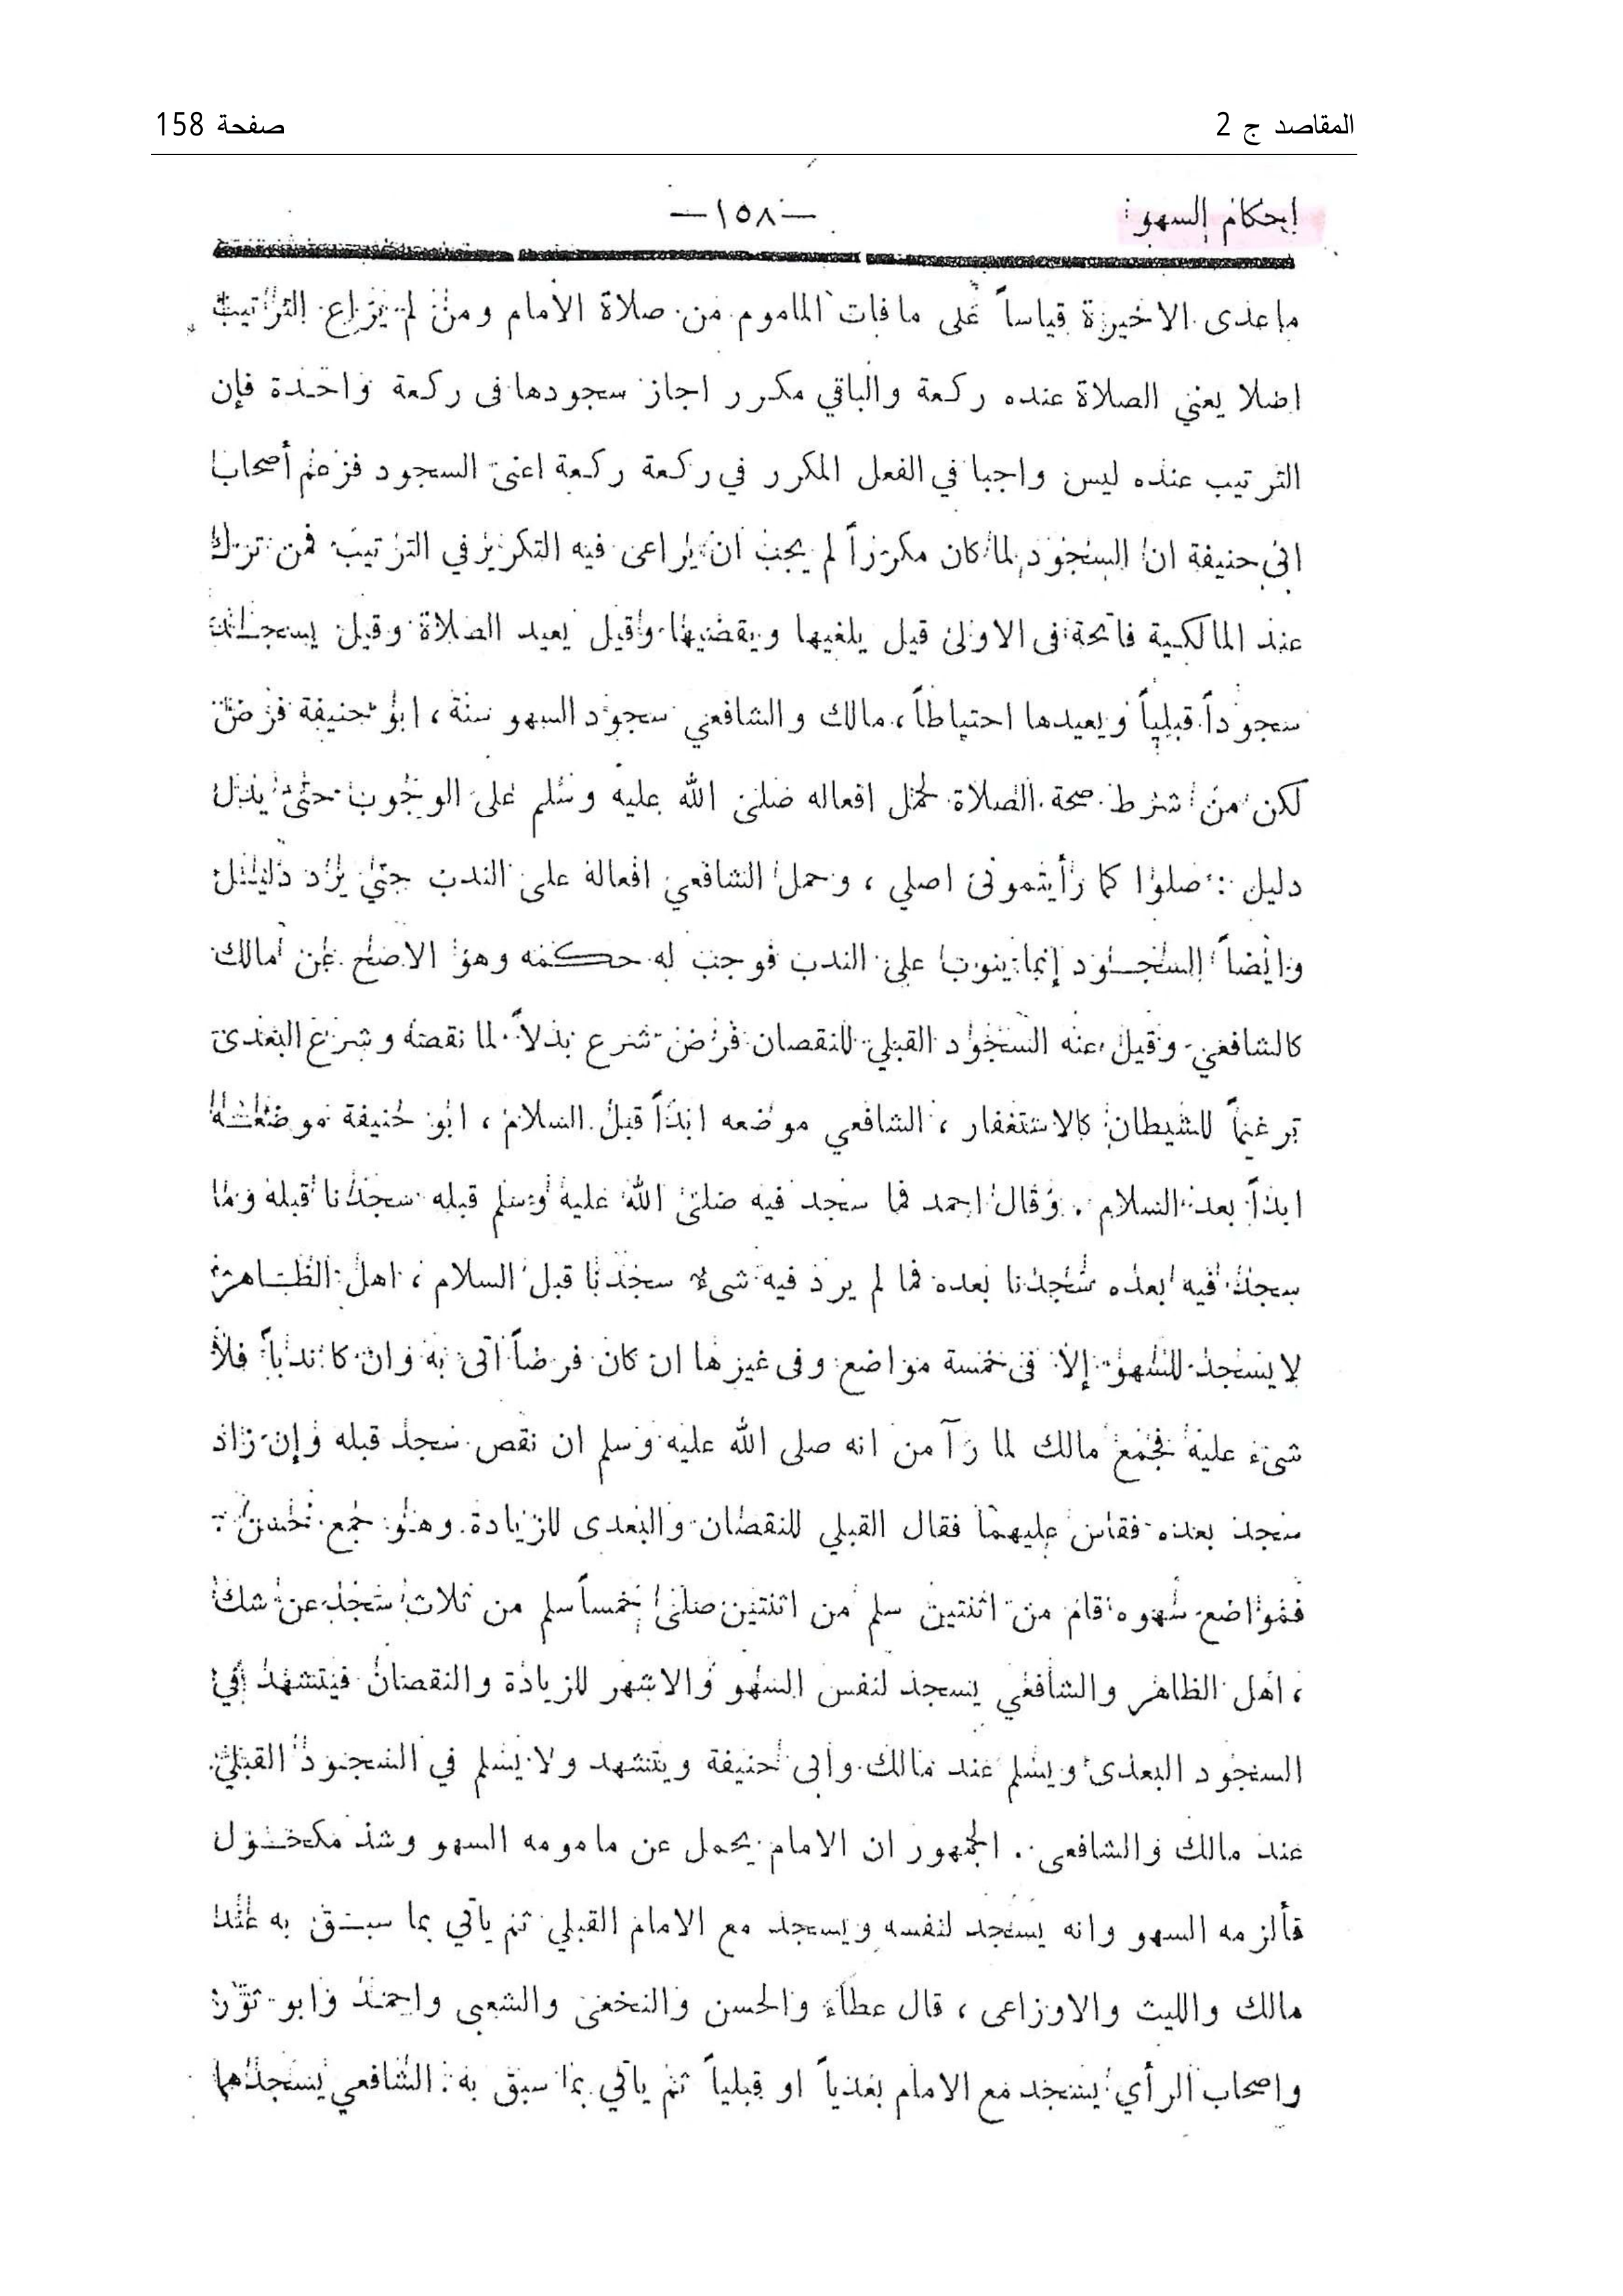 المقاصد ج 2
صفحة 158
احكام السهو
—١٥٨—
ماعدى الاخيرة قياساً على ما فات الماموم من صلاة الامام ومن لم يراع الترتيب
اصلا يعني الصلاة عنده ركعة والباقي مكرر اجاز سجودها فى ركعة واحدة فإن
الترتيب عنده ليس واجبا في الفعل المكرر في ركعة ركعة اعنى السجود فزعم أصحاب
ابى حنيفة ان السجود لما كان مكرراً لم يجب ان يراعى فيه التكرير في الترتيب فمن ترك
عند المالكية فاتحة فى الاولى قيل يلغيها ويقضيها وقيل يعيد الصلاة وقيل يسجد
سجوداً قبلياً ويعيدها احتياطاً ، مالك والشافعي سجود السهو سنة ، ابو حنيفة فرض
لكن من شرط صحة الصلاة لحمل افعاله صلى الله عليه وسلم على الوجوب حتى يدل
دليل : صلوا كما رأيتمونى اصلي ، وحمل الشافعي افعاله على الندب حتى يرد دليل
وايضاً السجود إنما ينوب على الندب فوجب له حكمه وهو الاصح عن مالك
كالشافعي وقيل عنه السجود القبلي للنقصان فرض شرع بدلاً لما نقصه وشرع البعدى
ترغيماً للشيطان كالاستغفار ، الشافعي موضعه ابداً قبل السلام ، ابو حنيفة موضعه
ابداً بعد السلام . وقال احمد فما سجد فيه صلى الله عليه وسلم قبله سجدنا قبله وما
سجد فيه بعده سجدنا بعده فما لم يرد فيه شىء سجدنا قبل السلام ، اهل الظاهر
لا يسجد للسهو إلا فى خمسة مواضع وفى غيرها ان كان فرضاً اتى به وان كا ندباً فلا
شىء عليه فجمع مالك لما رآ من انه صلى الله عليه وسلم ان نقص سجد قبله وإن زاد
سجد بعده فقاس عليهما فقال القبلي للنقصان والبعدى للزيادة وهو جمع حسن :
فمواضع سهوه قام من اثنتين سلم من اثنتين صلى خمساً سلم من ثلاث سجد عن شك
، اهل الظاهر والشافعي يسجد لنفس السهو والاشهر للزيادة والنقصان فيتشهد في
السجود البعدى ويسلم عند مالك وابى حنيفة ويتشهد ولا يسلم في السجود القبلي
عند مالك والشافعى . الجمهور ان الامام يحمل عن مامومه السهو وشذ مكحول
فألزمه السهو وانه يسجد لنفسه ويسجد مع الامام القبلي ثم ياتي بما سبق به عند
مالك والليث والاوزاعى ، قال عطاء والحسن والنخعى والشعبى واحمد وابو ثور
واصحاب الرأي يسجد مع الامام بعدياً او قبلياً ثم ياتي بما سبق به . الشافعي يسجدهما